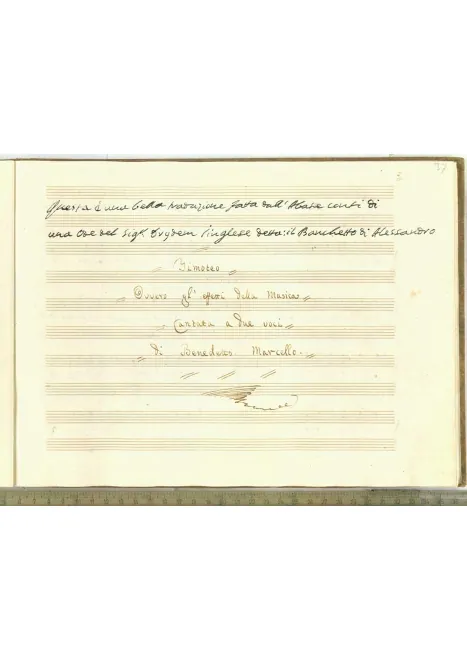 3 37
Questa è una bella traduzione fata dall' Abate conti di
una Ode del Sigr. Drydem l'inglese detta: il Banchetto di Alessandro
Timoteo
Ovvero gl' effetti della Musica
Cantata a due voci
di Benedetto Marcello.